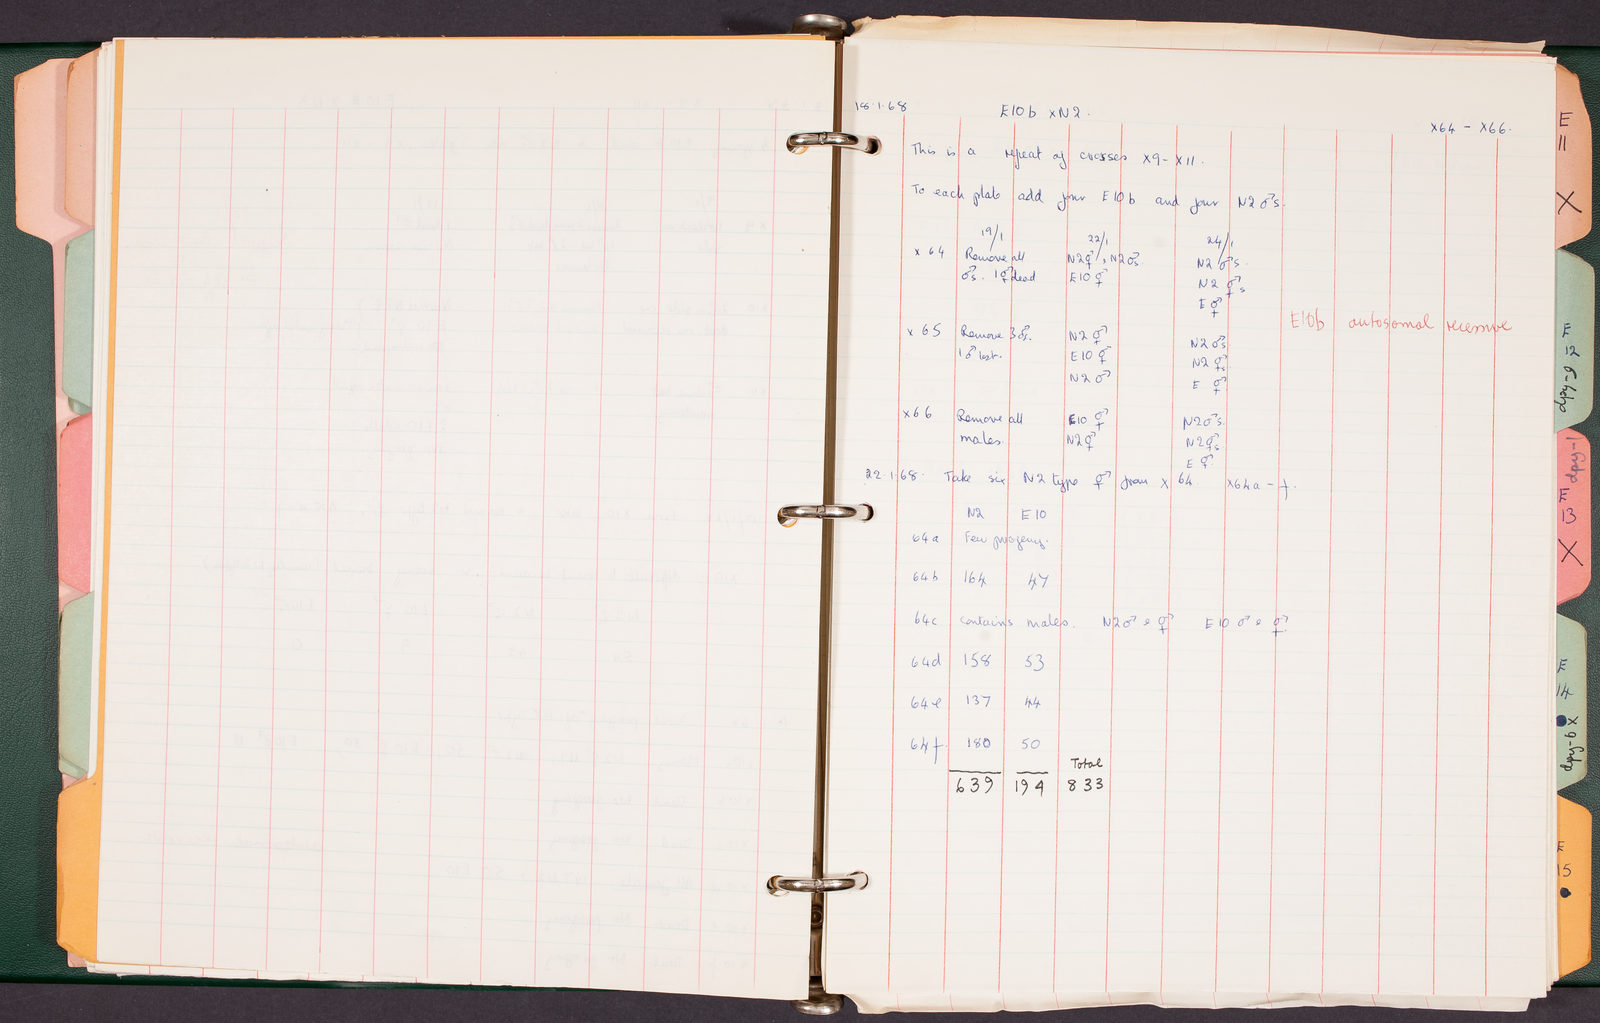 18.1.68 E10b x N2. x64 - x66.
This is a repeat of crosses x9 - x11.
To each plate add four E10b and four N2 ♂s.
19/1 22/1 24/1
x64 Remove all N2 ⚥, N2 ♂s. N2 ♂s.
♂s. 1 ⚥ dead E10 ⚥ N2 ⚥s
E ⚥
E10b autosomal recessive
x65 Remove 3 ♂s. N2 ⚥ N2 ♂s
1 ♂ lost. E10 ⚥ N2 ⚥s
N2 ♂ E ⚥
x66 Remove all E10 ⚥ N2 ♂s.
males. N2 ⚥ N2 ⚥s
E ⚥.
22.1.68. Take six N2 type ⚥ from x64. x64a - f.
N2 E10
64a Few progeny.
64b 164 47
64c contains males. N2 ♂ & ⚥ E10 ♂ & ⚥.
64d 158 53
64e 137 44
64f. 180 50
Total
639 194 833
E
11
X
E
12
dpy-9
dpy-1
E
13
X
E
14
dpy-6 X
E
15